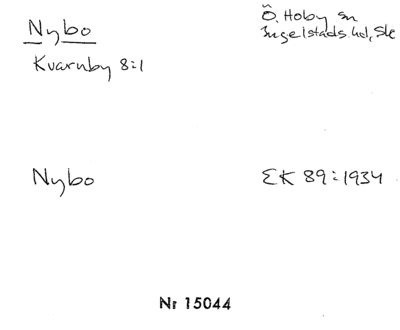 Nybo
Ö. Hoby sn
Ingelstads hd, Sk
Kvarnby 8:1
Nybo
EK 89:1934
Nr 15044